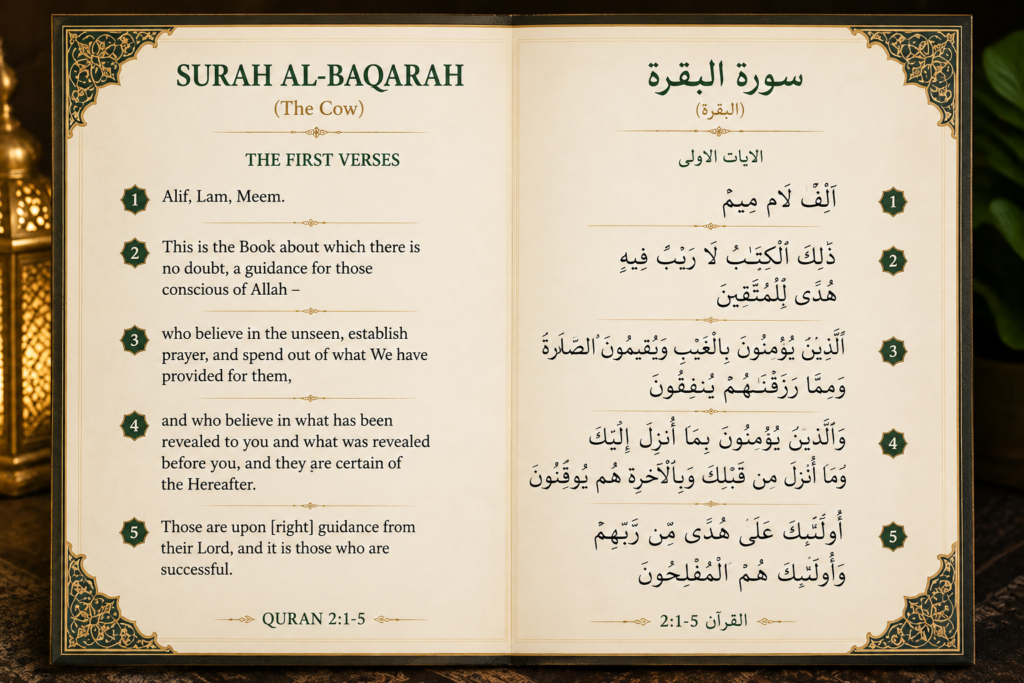 SURAH AL-BAQARAH
(The Cow)
THE FIRST VERSES
1 Alif, Lam, Meem.
2 This is the Book about which there is
no doubt, a guidance for those
conscious of Allah –
3 who believe in the unseen, establish
prayer, and spend out of what We have
provided for them,
4 and who believe in what has been
revealed to you and what was revealed
before you, and they are certain of
the Hereafter.
5 Those are upon [right] guidance from
their Lord, and it is those who are
successful.
QURAN 2:1-5
سورة البقرة
(البقرة)
الايات الاولى
اَلِفْ لَام مِيمْ 1
ذَٰلِكَ ٱلْكِتَـٰبُ لَا رَيْبَ فِيهِ 2
هُدًى لِّلْمُتَّقِينَ
ٱلَّذِينَ يُؤْمِنُونَ بِالْغَيْبِ وَيُقِيمُونَ 3
وَمِمَّا رَزَقْنَـٰهُمْ يُنفِقُونَ
وَٱلَّذِينَ يُؤْمِنُونَ بِمَا أُنزِلَ إِلَيْكَ 4
وَمَا أُنْزِلَ مِن قَبْلِكَ وَبِٱلْآخِرَةِ هُم يُوقِنُونَ
عَلَىٰ هُدًى مِّن رَّبِّهِمْ 5
هُمْ الْمُفْلِحُونَ
القرآن 2:1-5